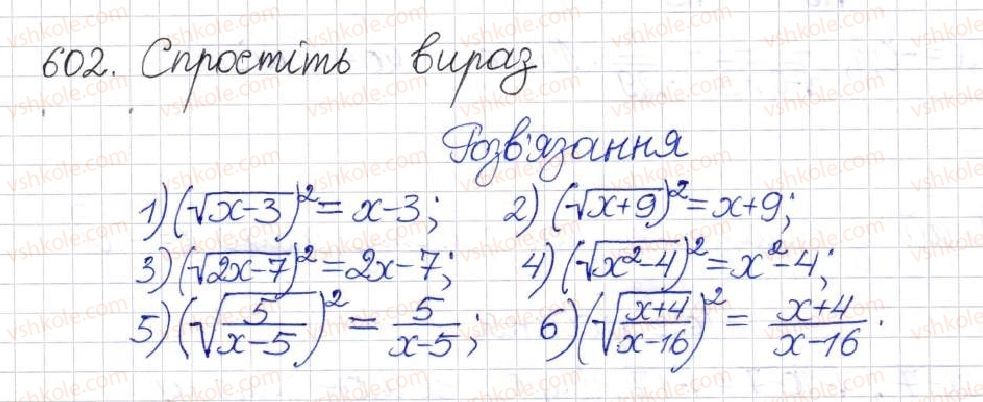 602. Спростіть вираз
Розв'язання
1) (√(x-3))² = x-3; 2) (√(x+9))² = x+9;
3) (√(2x-7))² = 2x-7; 4) (√(x²-4))² = x²-4;
5) (√(5/(x-5)))² = 5/(x-5); 6) (√((x+4)/(x-16)))² = (x+4)/(x-16).
vshkole.com